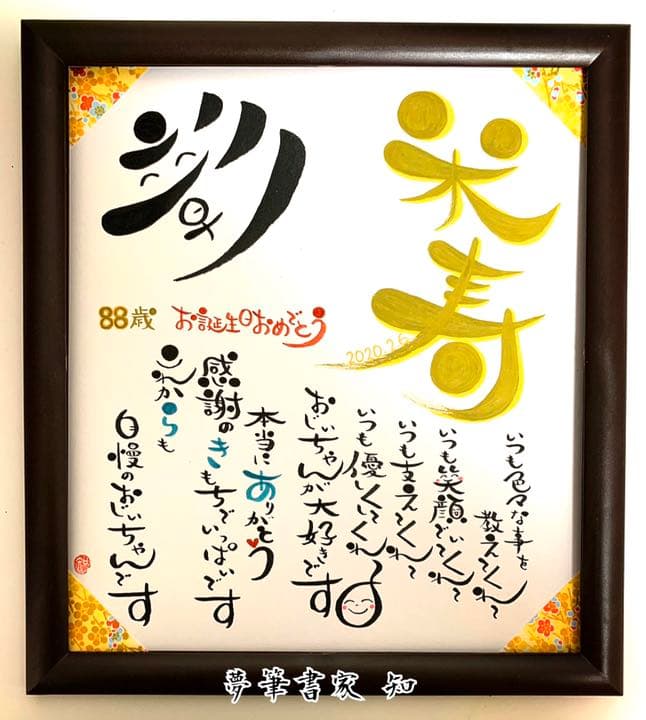 米寿
88歳 お誕生日おめでとう
いつも色々な事を
教えてくれて
いつも笑顔でいてくれて
いつも支えてくれて
いつも優しくしてくれて
おじいちゃんが大好きです
本当にありがとう
感謝のきもちでいっぱいです
これからも
自慢のおじいちゃんです
夢筆書家 知